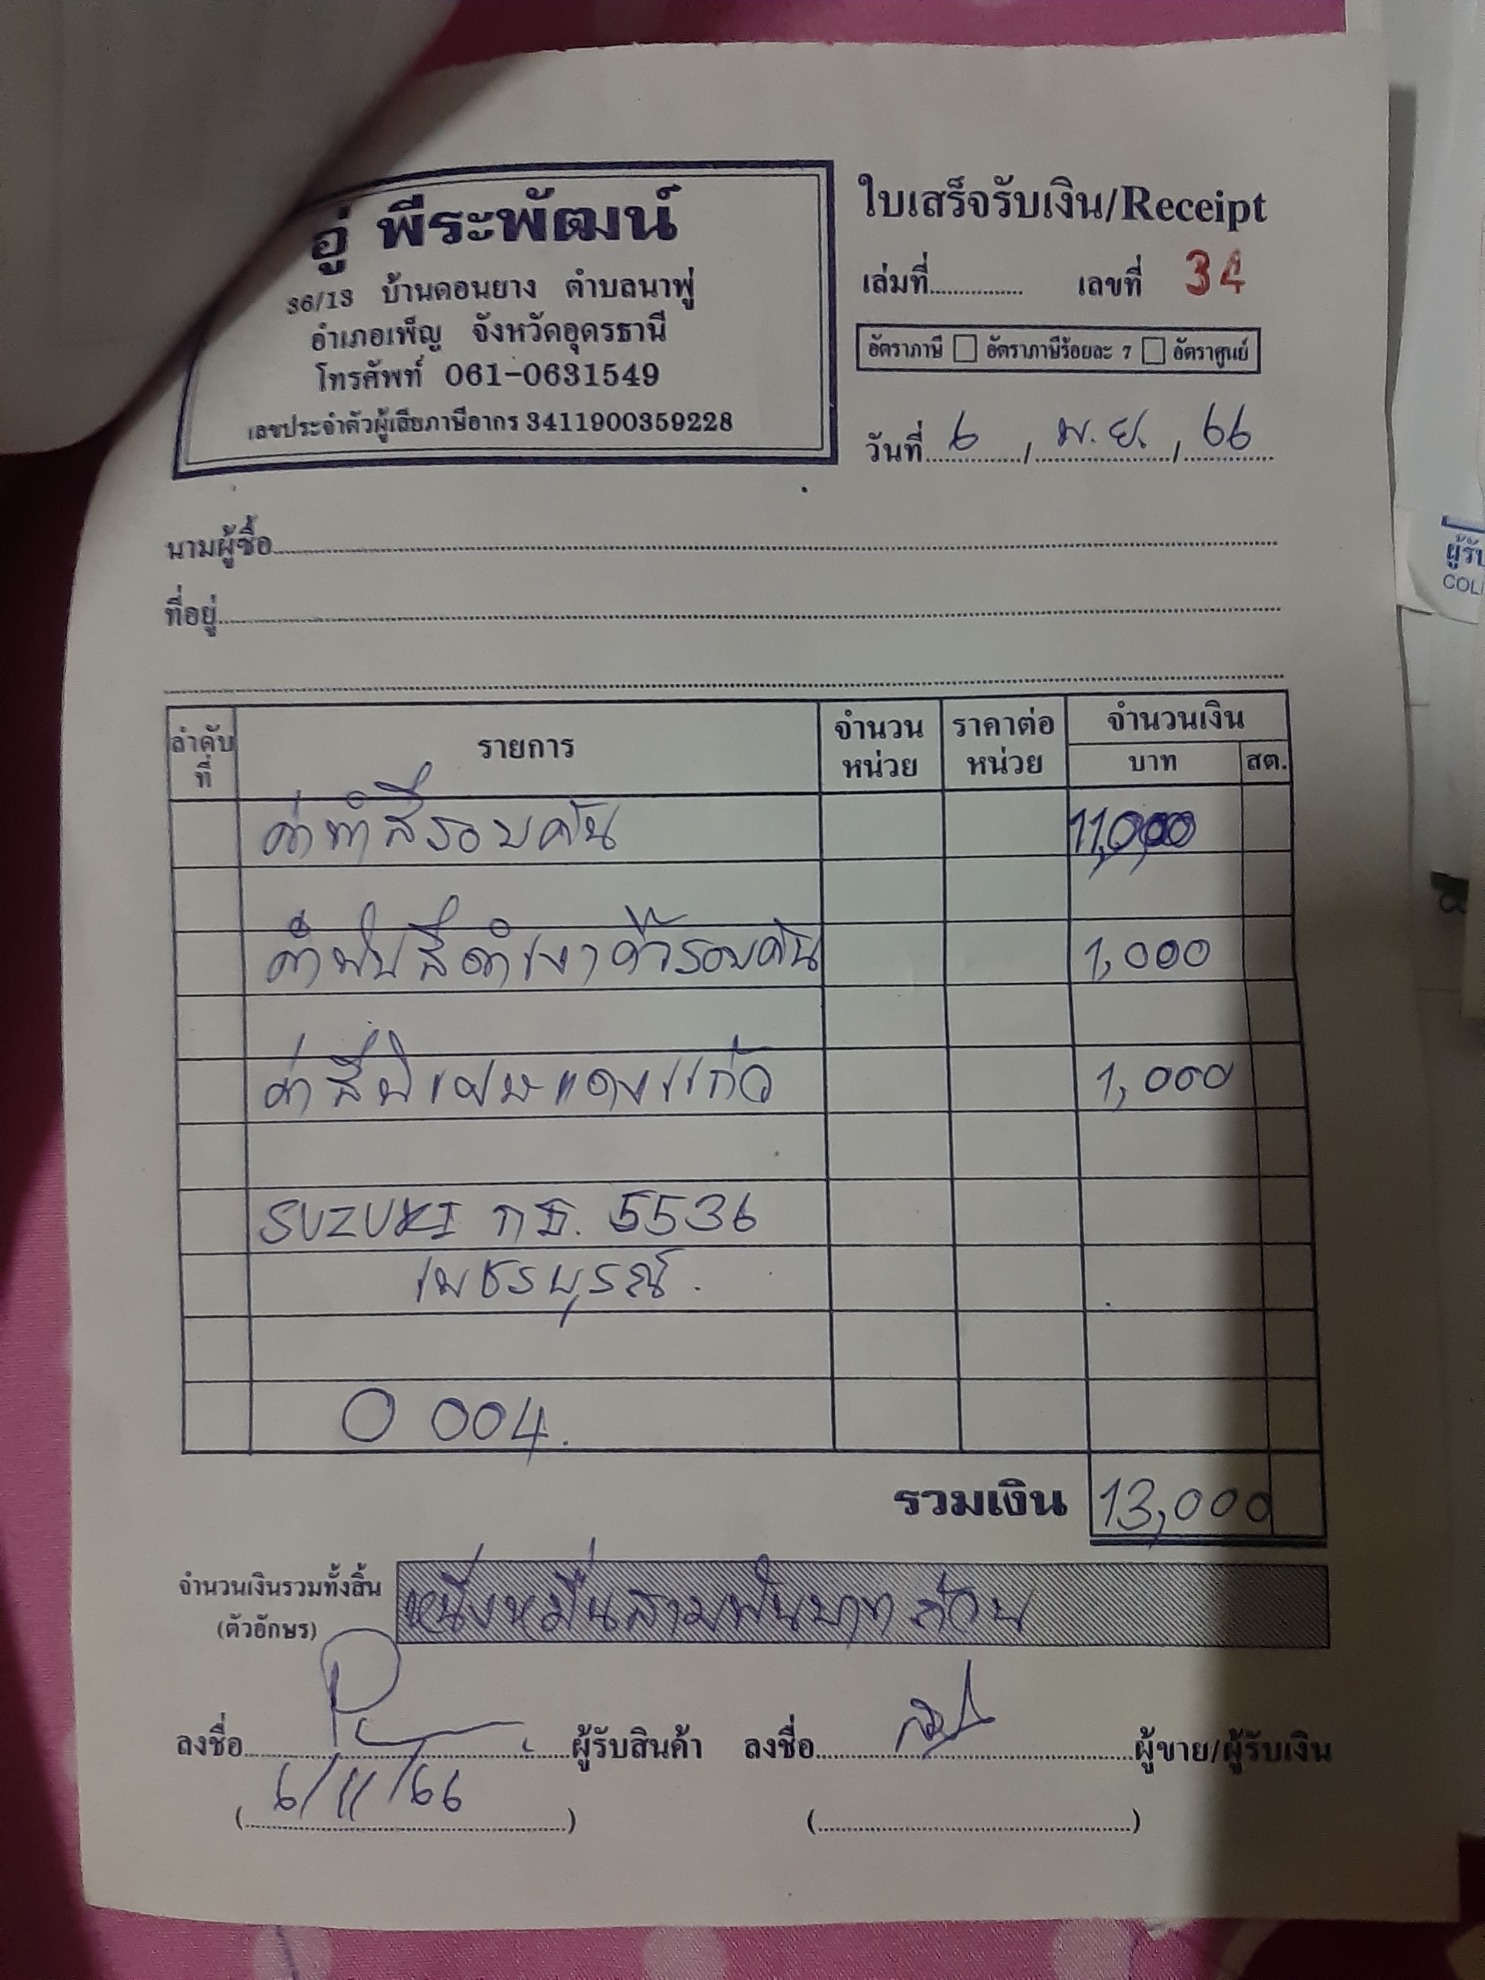 อู่ พีระพัฒน์
36/13 บ้านดอนยาง ตำบลนาพู่
อำเภอเพ็ญ จังหวัดอุดรธานี
โทรศัพท์ 061-0631549
เลขประจำตัวผู้เสียภาษีอากร 3411900359228
ใบเสร็จรับเงิน/Receipt
เล่มที่............... เลขที่ 34
อัตราภาษี อัตราภาษีร้อยละ 7 อัตราศูนย์
วันที่ 6 / พ.ย. / 66
นามผู้ซื้อ
ที่อยู่
ลำดับที่ รายการ จำนวนหน่วย ราคาต่อหน่วย จำนวนเงิน
บาท สต.
ค่าทำสีรอบคัน 11,000
ค่าพ่นสีดำเงาคิ้วรอบคัน 1,000
ค่าสีพิเศษแดงแก้ว 1,000
SUZUKI กธ. 5536
เพชรบูรณ์.
O 004.
รวมเงิน 13,000
จำนวนเงินรวมทั้งสิ้น (ตัวอักษร) หนึ่งหมื่นสามพันบาทถ้วน
ลงชื่อ ผู้รับสินค้า ลงชื่อ ผู้ขาย/ผู้รับเงิน
(6/11/66) ( )
ผู้รับ
COL